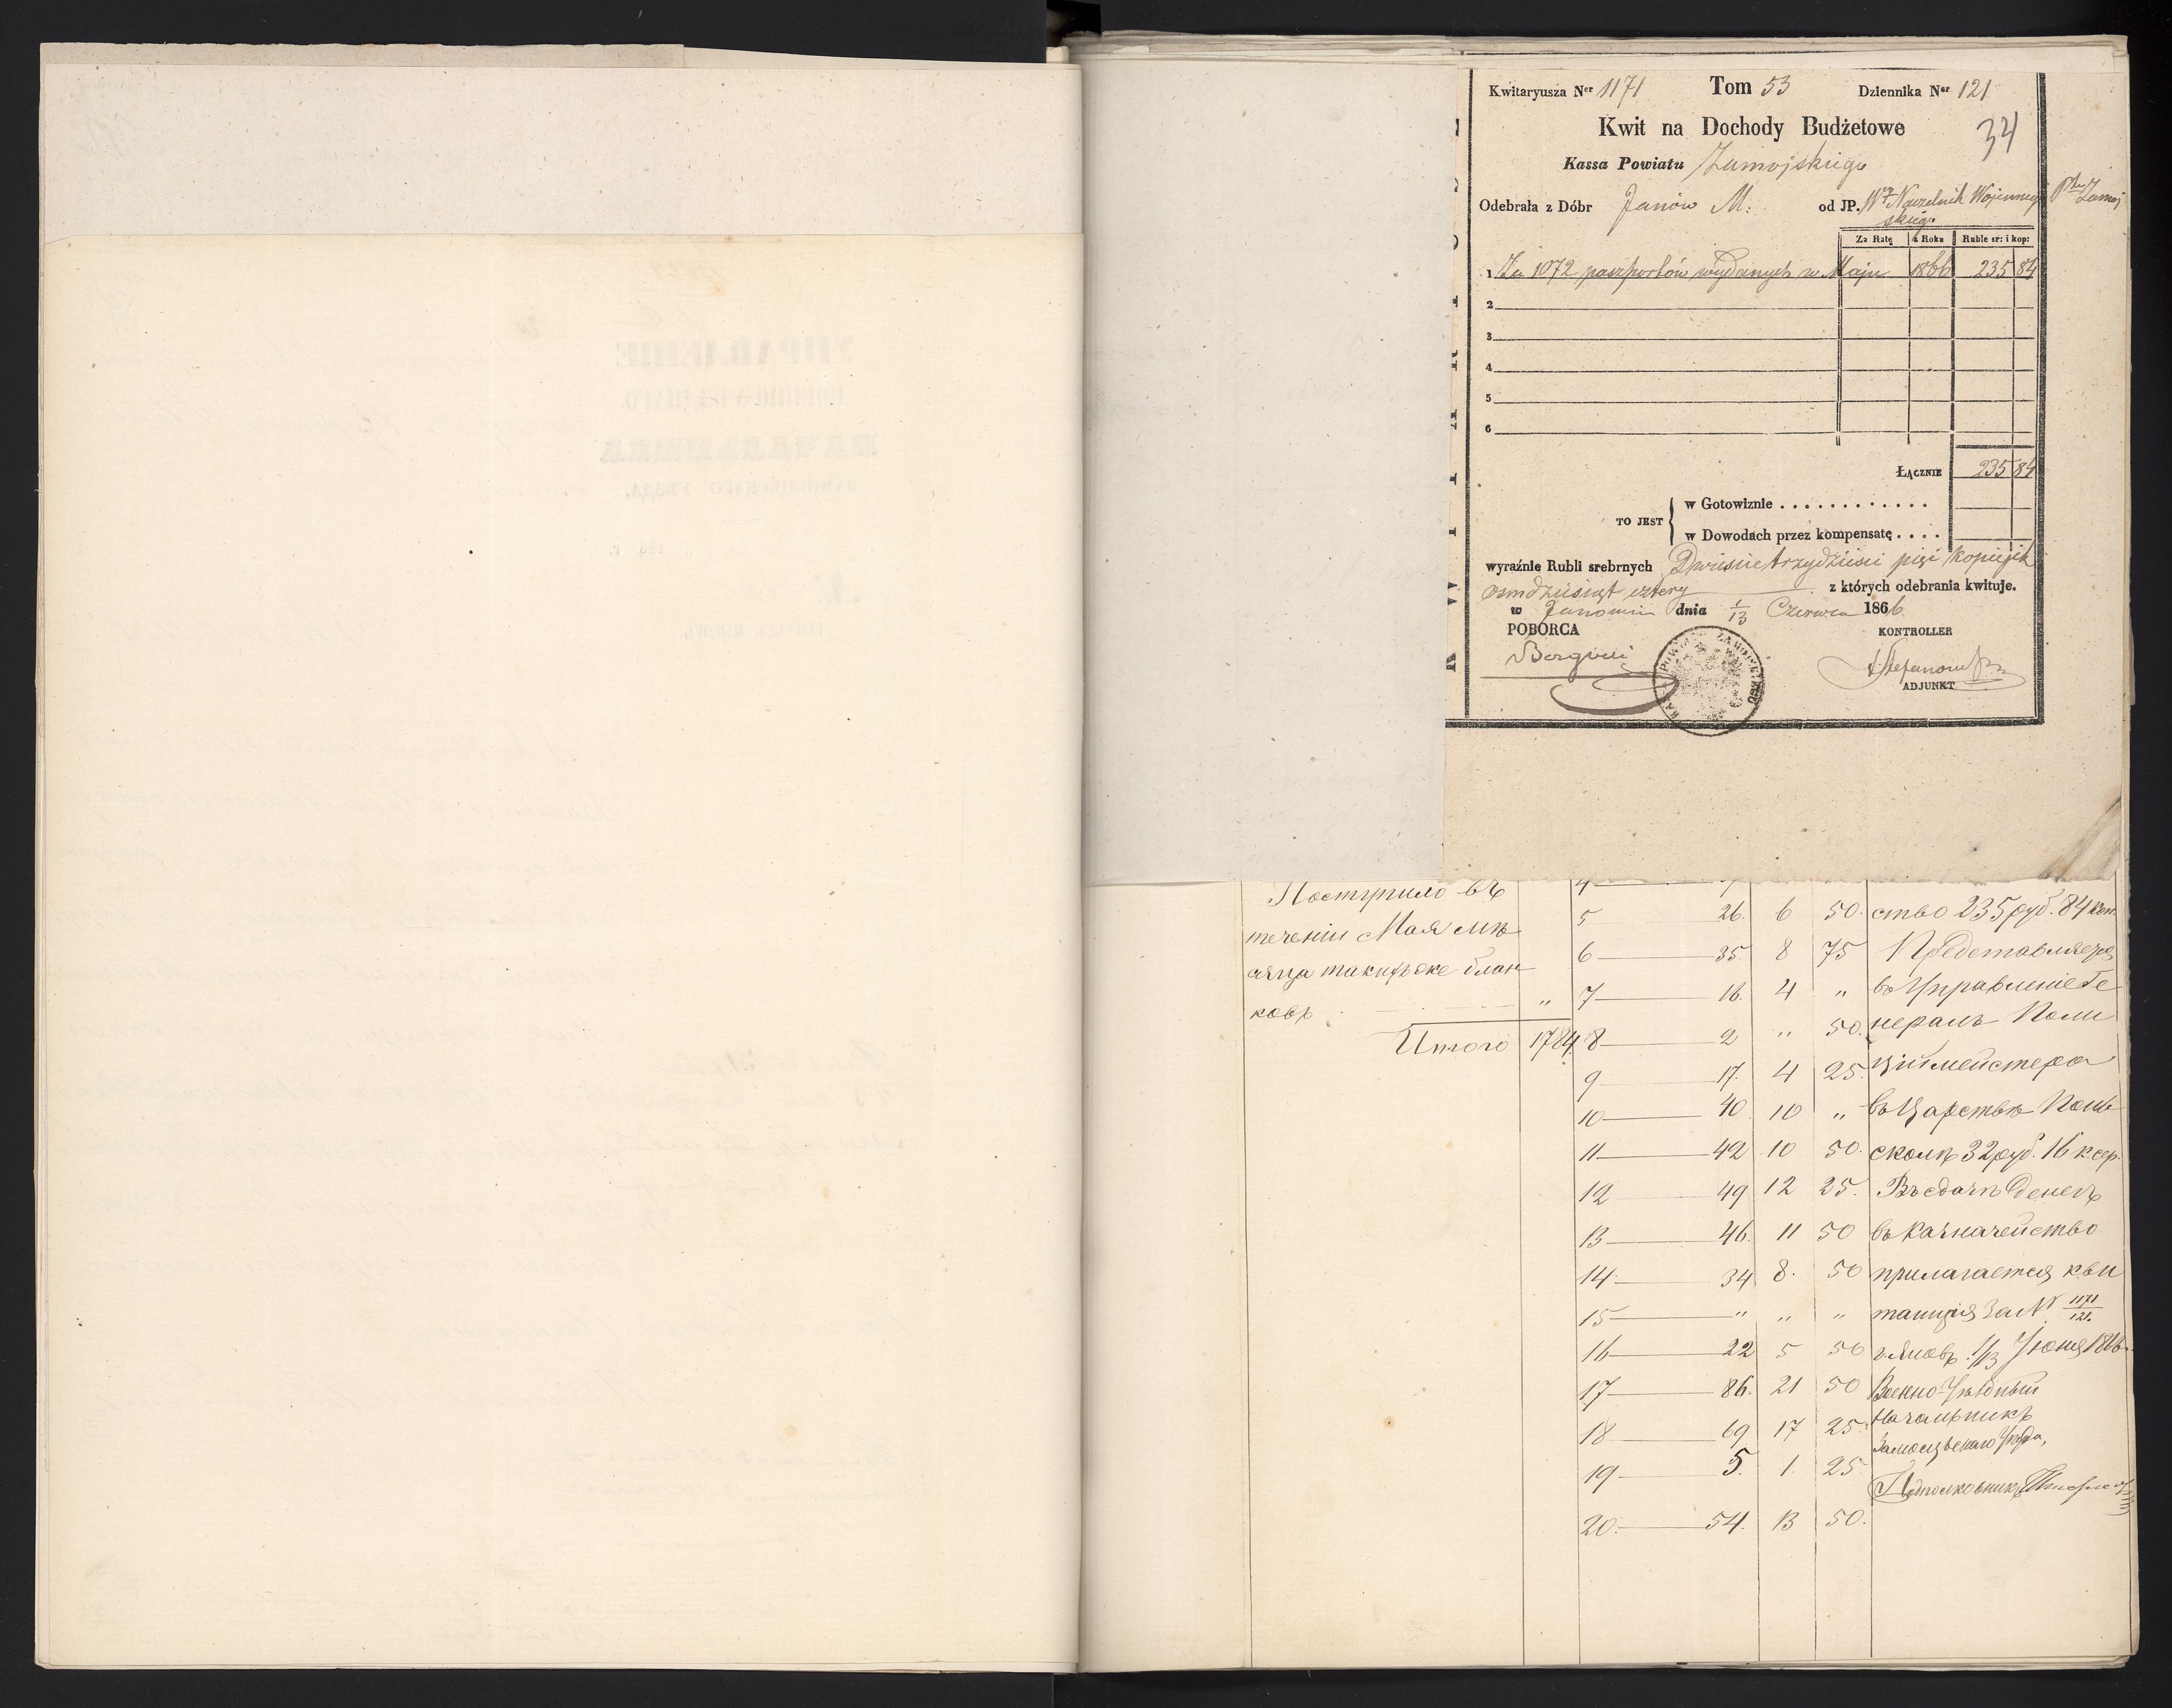 Kwitaryusza Ner 1171 Tom 53 Dziennika Ner 121
34
Kwit na Dochody Budżetowe
Kassa Powiatu Zamojskiego
Odebrała z Dóbr Janów M: od JP. Naczelnik Wojenny Ptu Zamoj
skiego
Za Ratę z Roku Ruble sr: i kop:
1 Za 1072 paszportów wydanych w Maju 1866 235 84
2
3
4
5
6
ŁĄCZNIE 235 84
w Gotowiznie . . . . . . . . . . . .
TO JEST
w Dowodach przez kompensatę . . . .
wyraźnie Rubli srebrnych Dwieście trzydzieści pięć kopiejek
osmdziesiąt cztery z których odebrania kwituje.
w Janowie dnia 1/13 Czerwca 1866
POBORCA KONTROLLER
ADJUNKT
Поступило въ
теченіи Мая мѣ
сяца такихъже блан
ковъ "
Итого 1784
5 26. 6 50.
6 35 8 75
7 16. 4 "
8 2 " 50.
9 17. 4 25.
10 40 10 "
11 42 10 50.
12 49 12 25.
13 46. 11 50
14 34 8. 50
15 " " "
16 22 5 50
17 86. 21 50
18 69 17 25
19 5. 1. 25
20. 54. 13 50.
ство 235 руб. 84 коп.
Представляется
въ Управленіе Ге
нералъ Поли
ціймейстера
въ Царствѣ Поль
скомъ 32 руб. 16 к. сер.
Въ сдачѣ денегъ
въ казначейство
прилагается кви
танція за № 1171/121.
г. Яновъ. 1/13 Іюня 1866.
Военно-Уѣздный
Начальникъ
Замосцьскаго Уѣзда,
Подполковникъ